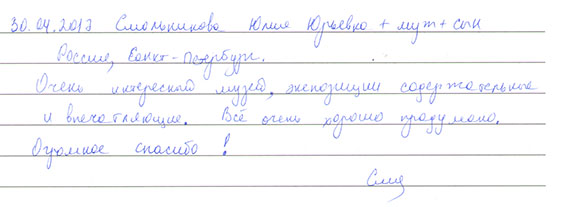 30.04.2017 Смольникова Юлия Юрьевна + муж + сын
Россия, Санкт-Петербург.
Очень интересный музей, экспозиции содержательные
и впечатляющие. Всё очень хорошо продумано.
Огромное спасибо!